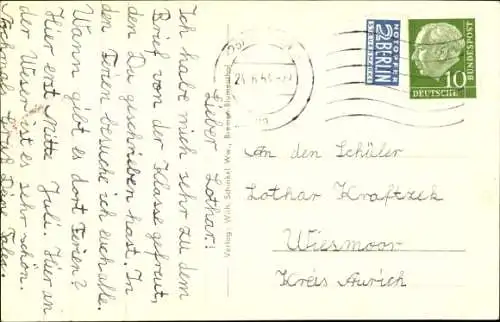 Lieber Lothar!
Ich habe mich sehr zu dem
Brief von der Klasse gefreut,
den Du geschrieben hast. In
den Ferien besuche ich euch alle.
Wann gibt es dort Ferien?
Hier erst Mitte Juli. Hier an
der Weser ist es sehr schön.
Nochmals Gruß Deine
Verlag: Wilh. Schinkel
NOTOPFER
2 BERLIN
STEUERMARKE
10
DEUTSCHE
BUNDESPOST
An den Schüler
Lothar Kraftzek
Wiesmoor
Kreis Aurich